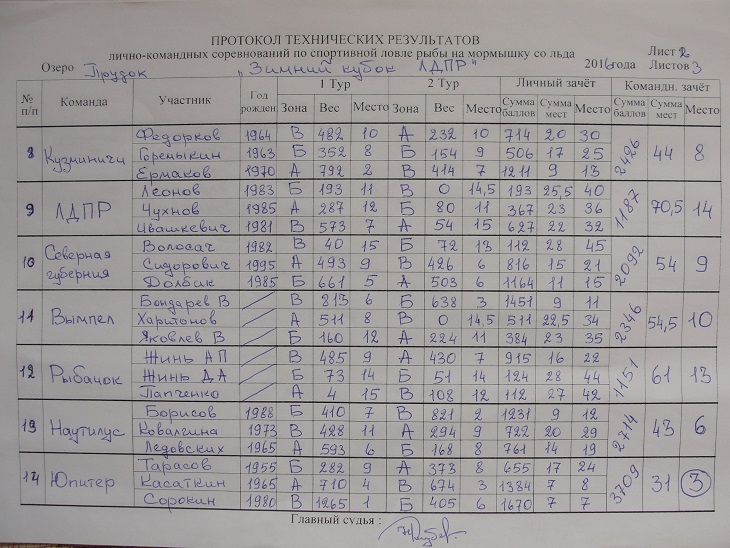 ПРОТОКОЛ ТЕХНИЧЕСКИХ РЕЗУЛЬТАТОВ
лично-командных соревнований по спортивной ловле рыбы на мормышку со льда Лист 2
Озеро Прудок "Зимний кубок ЛДПР" 2016 года Листов 3
№ п/п Команда Участник Год рожден. 1 Тур 2 Тур Личный зачёт Командн. зачёт
Зона Вес Место Зона Вес Место Сумма баллов Сумма мест Место Сумма баллов Сумма мест Место
8 Кузминичи Федорков 1964 В 482 10 А 232 10 714 20 30 2426 44 8
Горемыкин 1963 Б 352 8 Б 154 9 506 17 25
Ермаков 1970 А 792 2 В 414 7 1211 9 13
9 ЛДПР Леонов 1983 Б 193 11 В 0 14,5 193 25,5 40 1187 70,5 14
Чухнов 1985 А 287 12 Б 80 11 367 23 36
Ивашкевич 1981 В 573 7 А 54 15 627 22 32
10 Северная губерния Волосач 1982 В 40 15 Б 72 13 112 28 45 2092 54 9
Сидорович 1995 А 493 9 В 426 6 816 15 21
Долбик 1985 Б 661 5 А 503 6 1164 11 15
11 Вымпел Бондарев В 813 6 Б 638 3 1451 9 11 2346 54,5 10
Харитонов А 511 8 В 0 14,5 511 22,5 34
Яковлев В Б 160 12 А 224 11 384 23 35
12 Рыбачок Жинь АП В 485 9 А 430 7 915 16 22 1151 61 13
Жинь ДА Б 73 14 Б 51 14 124 28 44
Папченко А 4 15 В 108 12 112 27 42
13 Наутилус Борисов 1988 Б 410 7 В 821 2 1231 9 12 2714 43 6
Ковалгина 1973 В 428 11 А 294 9 722 20 29
Ледовских 1965 А 593 6 Б 168 8 761 14 19
14 Юпитер Тарасов 1955 Б 282 9 А 373 8 655 17 24 3709 31 3
Касаткин 1965 А 710 4 В 674 3 1384 7 8
Сорокин 1980 В 1265 1 Б 405 6 1670 7 7
Главный судья :